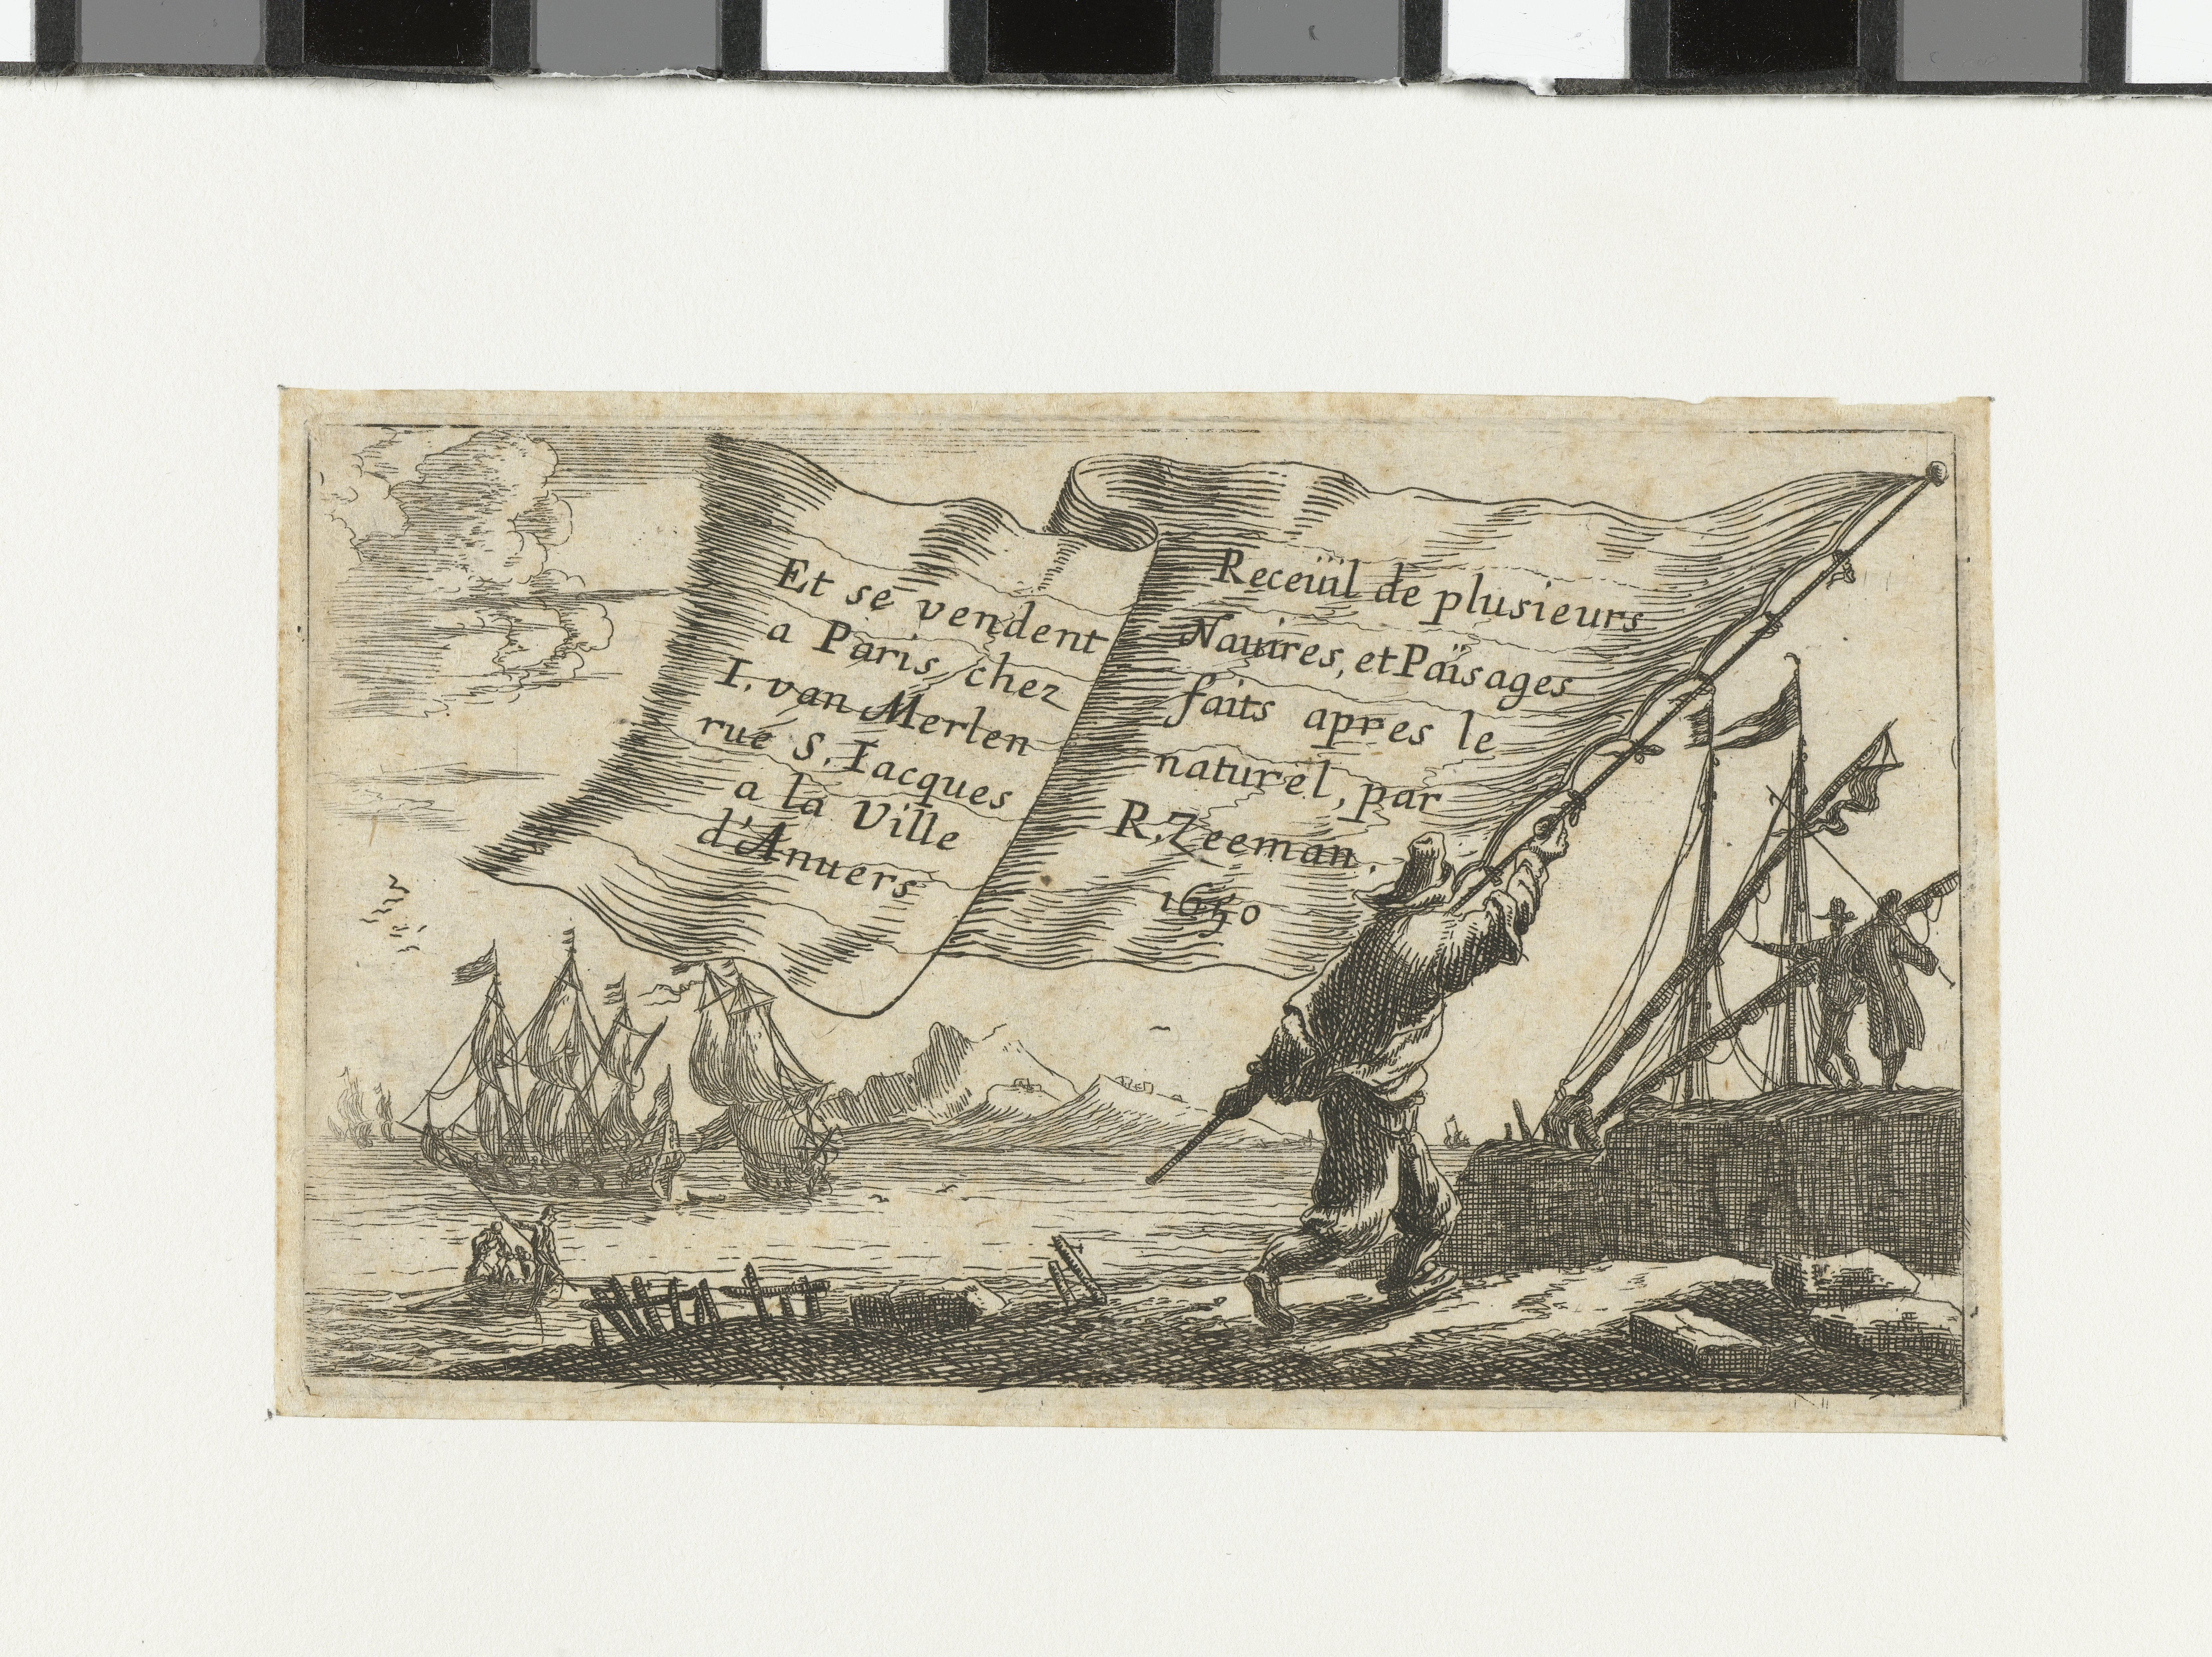 Receüil de plusieurs
Nauires, et Païsages
faits apres le
naturel, par
R. Zeeman.
1650
Et se vendent
a Paris chez
I. van Merlen
rue S. Iacques
a la Ville
d'Anuers